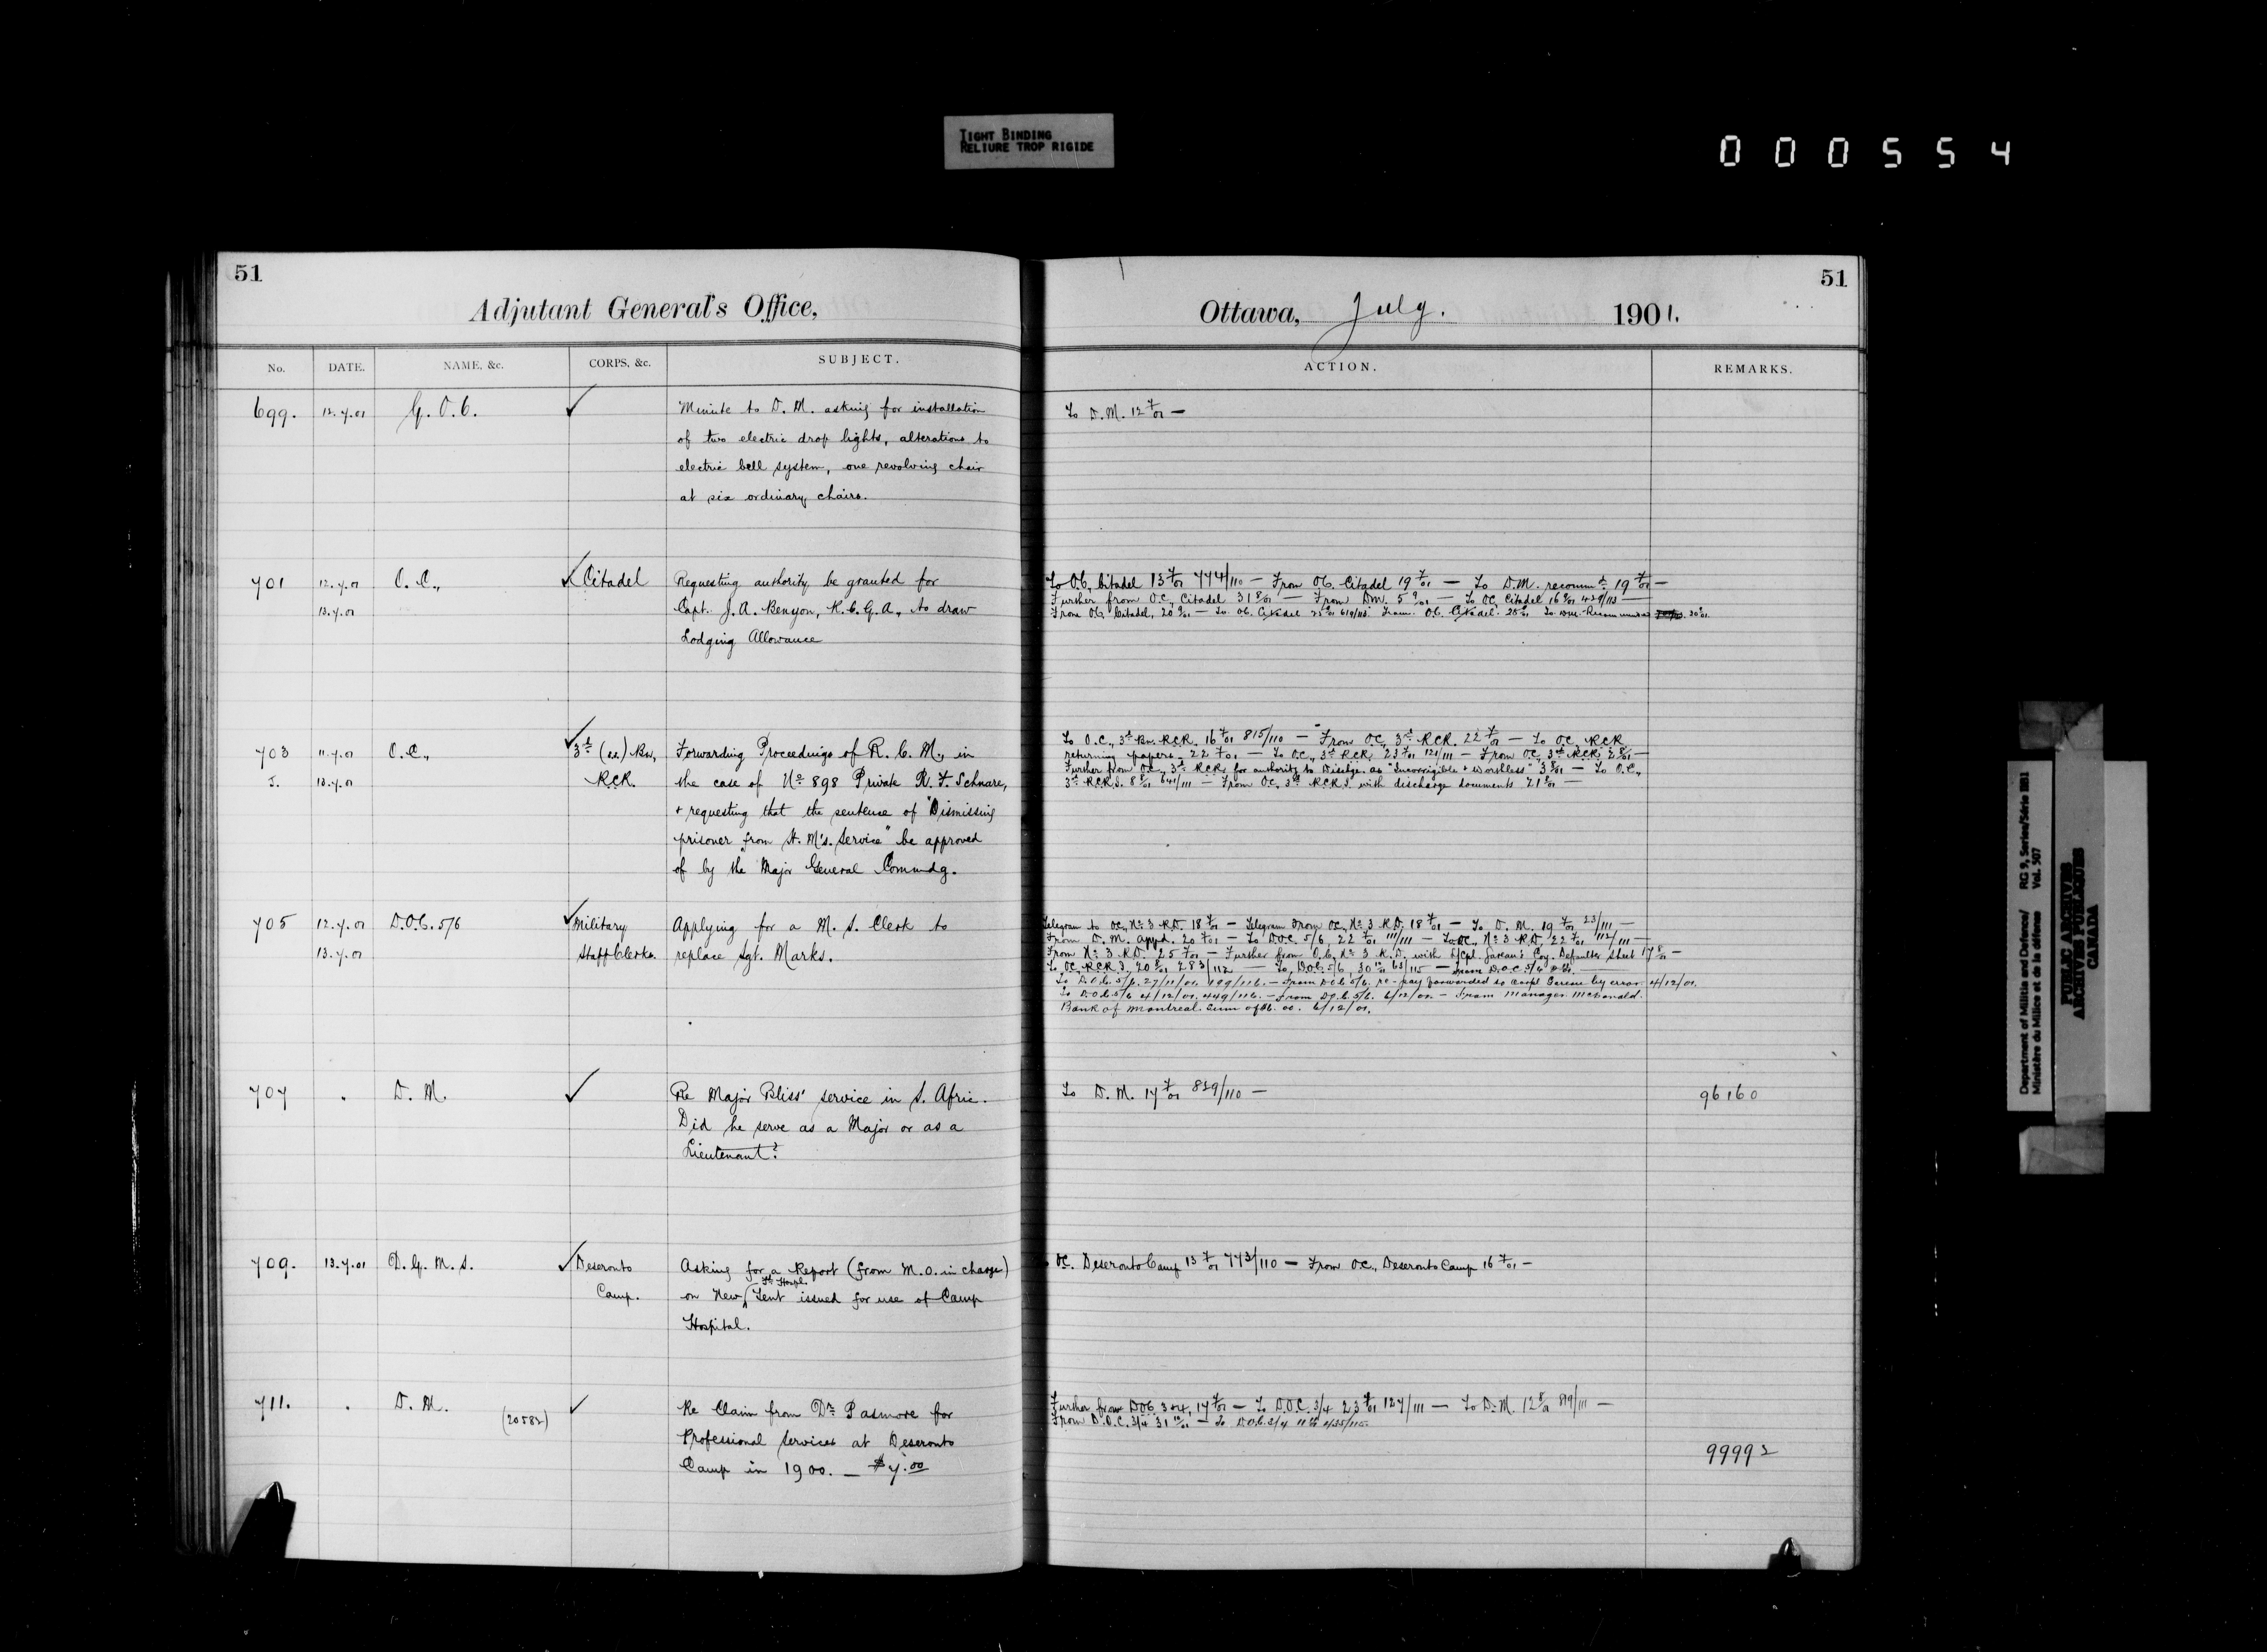 TIGHT BINDING
RELIURE TROP RIGIDE
000554
51
Adjutant General's Office,
No. DATE. NAME, &c. CORPS, &c. SUBJECT.
699. 12.7.01 G.O.C. ✓ Minute to D.M. asking for installation
of two electric drop lights, alterations to
electric bell system, one revolving chair
at six ordinary chairs.
701 12.7.01 O.C., ✓ Citadel Requesting authority be granted for
13.7.01 Capt. J.A. Benyon, R.C.G.A., to draw
Lodging Allowance
703 11.7.01 O.C., ✓ 3rd (s.s.) Bn, Forwarding Proceedings of R.C.M., in
J. 13.7.01 RCR. the case of No 898 Private R.F. Schnare,
+ requesting that the sentence of "Dismissing
prisoner from H.M's. Service" be approved
of by the Major General Commdg.
705 12.7.01 D.O.C. 5/6 ✓ Military Applying for a M.S. Clerk to
13.7.01 Staff Clerks. replace Sgt. Marks.
707 . D.M. ✓ Re Major Bliss' service in S. Afric.
Did he serve as a Major or as a
Lieutenant?
709. 13.7.01 D.G.M.S. ✓ Deseronto Asking for a Report (from M.O. in charge)
Camp. on New Tent issued for use of Camp
Hospital.
711. . D.M. (20582) ✓ Re Claim from Dr Pasmore for
Professional Services at Deseronto
Camp in 1900. — $7.00
51
Ottawa, July. 1901.
ACTION. REMARKS.
To D.M. 12 7/01 —
To O.C. Citadel 13 7/01 774/110 — From O.C. Citadel 19 7/01 — To D.M. recommd 19 7/01 —
Further from O.C., Citadel 31 8/01 — From D.M. 5 9/01 — To OC, Citadel 16 9/01 429/113 —
From O.C. Citadel, 20 9/01 — To O.C. Citadel From O.C. Citadel. To 30 9/01.
To O.C., 3rd Bn. RCR. 16 7/01 815/110 — From OC., 3rd RCR. 22 7/01 — To OC, RCR
returning papers. 22 7/01 — To O.C., 3rd RCR, 23 7/01 121/111 — From OC, 3rd RCR, 2 8/01 —
Further from O.C., 3rd RCR, for authority to Disctge. as "Incorrigible + worthless" 3 8/01 — To O.C.,
3rd RCRS. 8 8/01 641/111 — From OC, 3rd RCRS. with discharge documents 21 8/01 —
Telegram to OC, No 3 R.D. 18 7/01 — Telegram From OC, No 3 R.D. 18 7/01 — To D.M. 19 7/01 23/111 —
From D.M. appd. 20 7/01 — To D.O.C. 5/6 22 7/01 111/111 — To OC, No 3 R.D. 22 7/01 112/111 —
From No 3 R.D. 25 7/01 — Further from O.C. No 3 R.D. with L/Cpl. Coy. Defaulter Sheet 17 8/01 —
To OC, RCR 3. 20 8/01 283/112 — To D.O.C. 5/6, 30 10/01 63/115 — From D.O.C. 5/6
To D.O.C. 5/6. 27/11/01. 199/116. — From D.O.C. 5/6, re-pay forwarded to by error 4/12/01.
To D.O.C. 5/6 4/12/01. 449/116. — From D.O.C. 5/6. 6/12/01. — From Manager McDonald.
Bank of Montreal. Sum of 6/12/01.
To D.M. 17 7/01 839/110 — 96160
OC. Deseronto Camp 13 7/01 773/110 — From O.C., Deseronto Camp 16 7/01 —
Further from DOC 3+4, 17 7/01 — To D.O.C. 3/4 23 7/01 127/111 — To D.M. 12 8/01 819/111 —
From D.O.C. 3/4 31 10/01 — To D.O.C. 3/4
99992
Department of Militia and Defence/ RG 9, Series/Série IIB1
Ministère du Milice et de la défense Vol. 507
PUBLIC ARCHIVES
ARCHIVES PUBLIQUES
CANADA